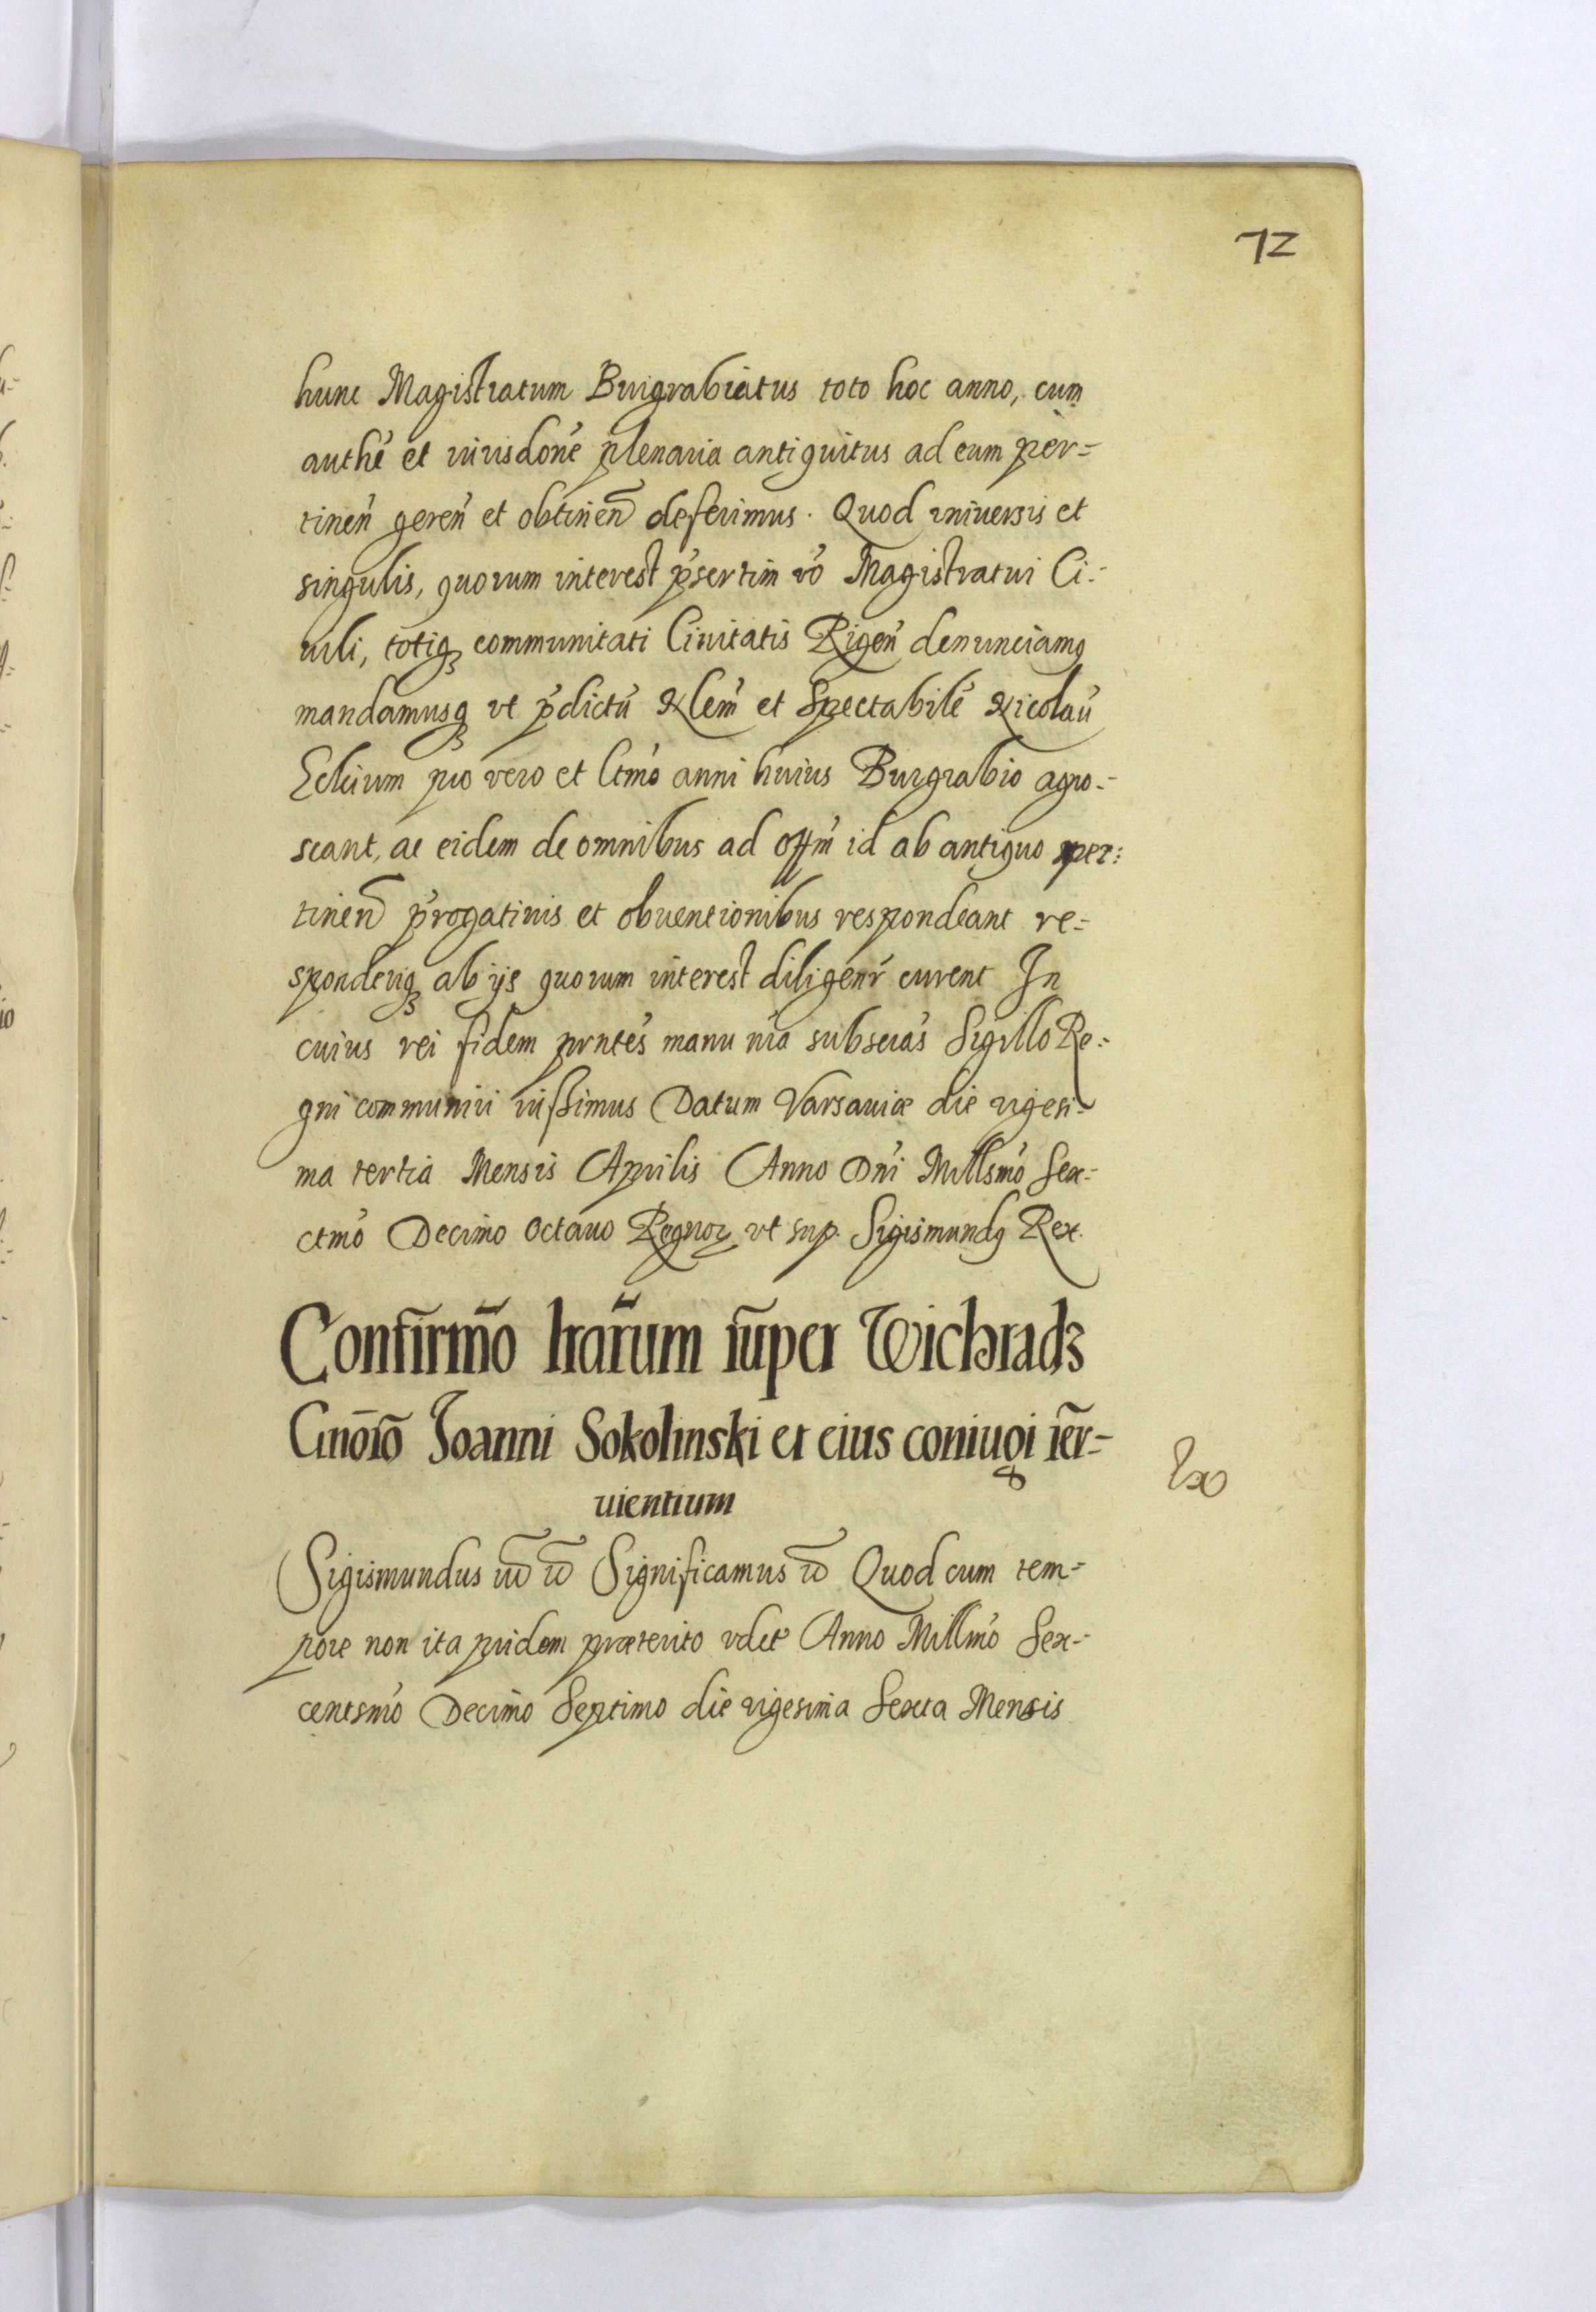 72
hunc Magistratum Burgrabiatus toto hoc anno, cum
authẽ et iurisdoñe plenaria antiquitus ad eum per-
tineñ gereñ et obtineñ deferimus. Quod vniuersis et
singulis, quorum interest p̃sertim vo᷉ Magistratui Ci-
uili, totiq₃ communitati Ciuitatis Rigeñ denunciamꝯ
mandamusq₃ vt p̃dictũ Nlem̃ et Spectabilẽ Nicolaũ
Eckium pro vero et ltmõ anni huius Burgrabio agno-
scant, ac eidem de omnibus ad offm̃ id ab antiquo per-
tineñ p̃rogatiuis et obuentionibus respondeant re-
sponderiq₃ ab ijs quorum interest diligenr̃ curent In
cuius rei fidem pr̃ntes manu nr̃a subscr̃as Sigillo Re-
gni communiri iussimus Datum Varsauiæ die vigesi-
ma tertia Mensis Aprilis Anno Dñi Millsmõ Sex-
ctmõ Decimo Octauo Regnoꝝ vt sup. Sigismundꝯ Rex.
Confirmõ lrãrum super Wichrads
Gnõso Joanni Sokolinski et eius coniugi ser-
uientium
Sigismundus Significamus Quod cum tem-
pore non ita pridem præterito vdlt Anno Millmõ Sex-
centsmõ Decimo Septimo die vigesima Sexta Mensis